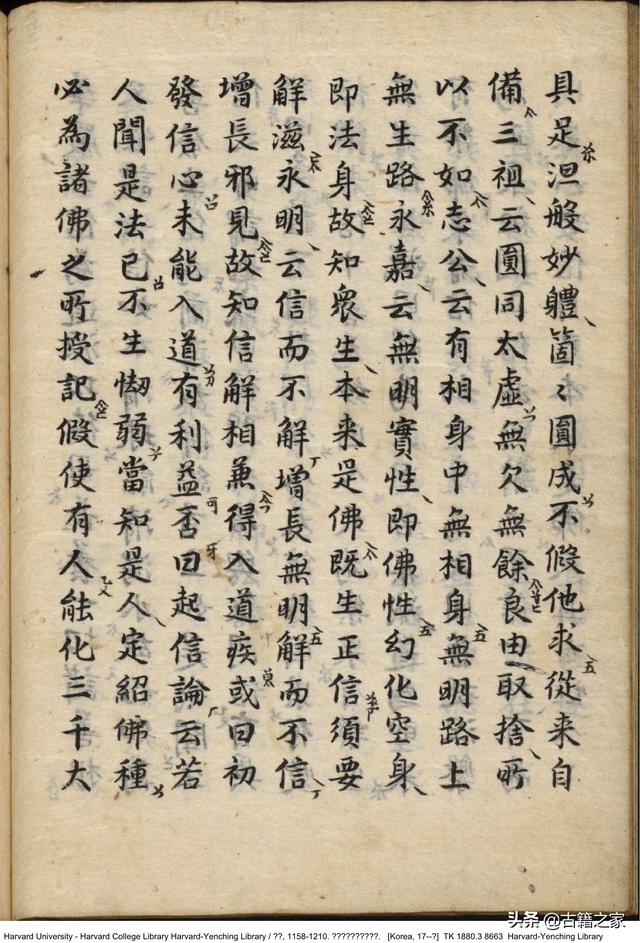 具足涅般妙軆箇〻圓成不假他求從来自
備三祖云圓同太虛無欠無餘良由取捨所
以不如志公云有相身中無相身無明路上
無生路永嘉云無明實性即佛性幻化空身
即法身故知衆生本来是佛既生正信須要
解滋永明云信而不解增長無明解而不信
增長邪見故知信解相兼得入道疾或曰初
發信心未能入道有利益否曰起信論云若
人聞是法已不生㤼弱當知是人定紹佛種
必為諸佛之所授記假使有人能化三千大
头条 @古籍之家
Harvard University - Harvard College Library Harvard-Yenching Library / ??, 1158-1210. ??????????. [Korea, 17--?] TK 1880.3 8663 Harvard-Yenching Library